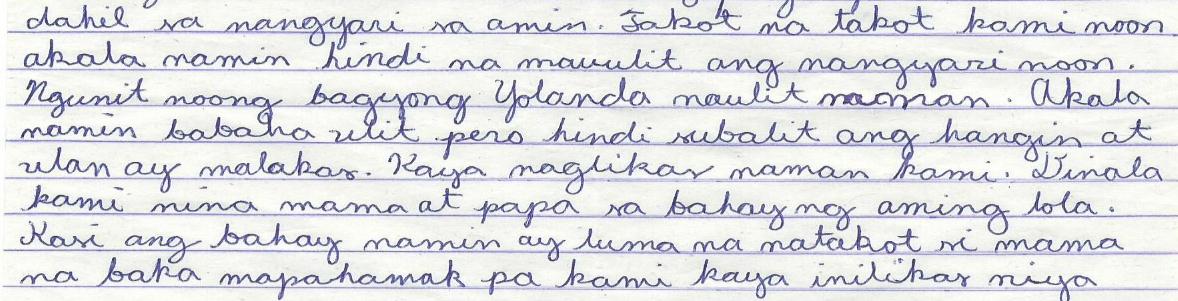 dahil sa nangyari sa amin. Takot na takot kami noon
akala namin hindi na mauulit ang nangyari noon.
Ngunit noong bagyong Yolanda naulit naman. Akala
namin babaha ulit pero hindi subalit ang hangin at
ulan ay malakas. Kaya naglikas naman kami. Dinala
kami nina mama at papa sa bahay ng aming lola.
Kasi ang bahay namin ay luma na natakot si mama
na baka mapahamak pa kami kaya inilikas niya